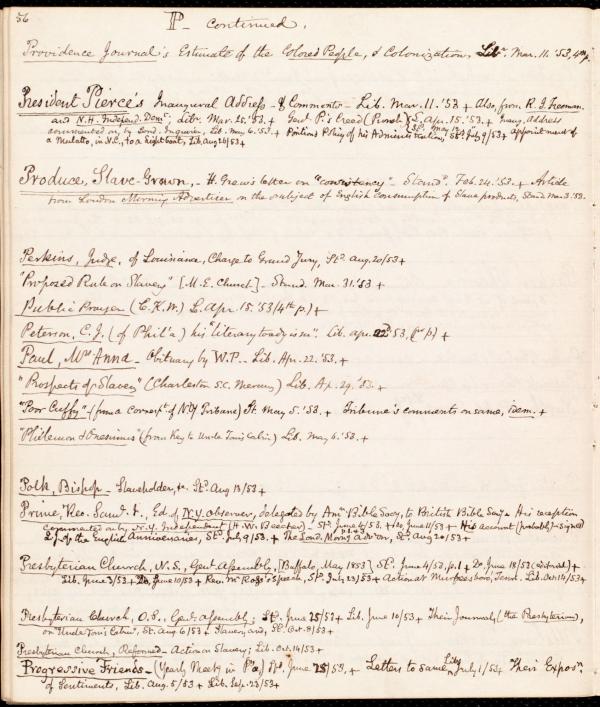 56
P - continued.
Providence Journal's Estimate of the Colored People, & Colonization. Libr. Mar. 11. '53, 4th p.
President Pierce's Inaugural Address - & Comments - Lib. Mar. 11. '53 + Also, from R. I. Freeman.
and N.H. Independ. Demt; Libr. Mar. 25. '53. + Genl P.'s Creed ( ) S. Apr. 15. '53. + Inaug. Address
commented on, by Lond. Inquirer, Lib. May 6. '53. + Position & Policy of his Administration, Std July 9/53 + Appointment of
a Mulatto, in N.C., to a light boat, Lib. Aug 26/53 +
Produce, Slave-Grown, - H. Grew's letter on "consistency" - Standd. Feb. 24. '53. + Article
from London Morning Advertiser on the subject of English Consumption of Slave products, Stand. Mar 3. '53.
Perkins, Judge, of Louisiana, Charge to Grand Jury, Std. Aug. 20/53 +
"Proposed Rule on Slavery" [M.E. Church] - Stand. Mar. 31. '53 +
Public Prayer (E.K.W.) L. Apr. 15. '53 (4th p.) +
Peterson, C.J. (of Phil'a) his "literary toadyism". Lib. Apr. 22d '53. (1st p) +
Paul, Mrs Anna - Obituary by W.P. - Lib. Apr. 22. '53. +
"Prospects of Slavery" (Charleston S.C. Mercury) Lib. Ap. 29. '53. +
"Poor Cuffy" - (from a correspt. of N.Y Tribune) St. May 5. '53. + Tribune's comments on same, idem. +
"Philemon & Onesimus" (from Key to Uncle Tom's Cabin) Lib. May 6. '53. +
Polk, Bishop - Slaveholder, &c. Std. Aug 13/53 +
Prime, Rev. Saml. I., Ed. of N.Y. Observer, delegated by Amn Bible Socy, to British Bible Socy + His reception
commented on by N.Y. Independent (H. W. Beecher) - Std. June 4/53, + Do. June 11/53 + His account (probably) - signed
of the English Anniversaries, Std. July 9/53. + The Lond. Morng Adv. on, Std Aug 20/53 +
Presbyterian Church, N.S., Genl. Assembly, [Buffalo, May 1853] Std. June 4/53, p. 1 + Do June 18/53 (editorial) +
Lib. June 3/53 + Do. June 10/53 + Rev. Mr Ross's Speech, Std. July 23/53 + Action at Murfreesboro, Tenn. Lib. Oct 14/53 +
Presbyterian Church, O.S., Genl. Assembly; Std. June 25/53 + Lib. June 10/53 + Their Journals, (the Presbyterian),
on "Uncle Tom's Cabin", St. Aug. 6/53 + Slavery, and, Std. Oct. 8/53 +
Presbyterian Church, Reformed - Action on Slavery; Lib. Oct. 14/53 +
Progressive Friends - (Yearly Meetg in Pa) Std. June 25/53. + Letters to same, Lib. July 1/53 + Their Exposn.
of Sentiments, Lib. Aug. 5/53 + Lib. Sep. 23/53 +